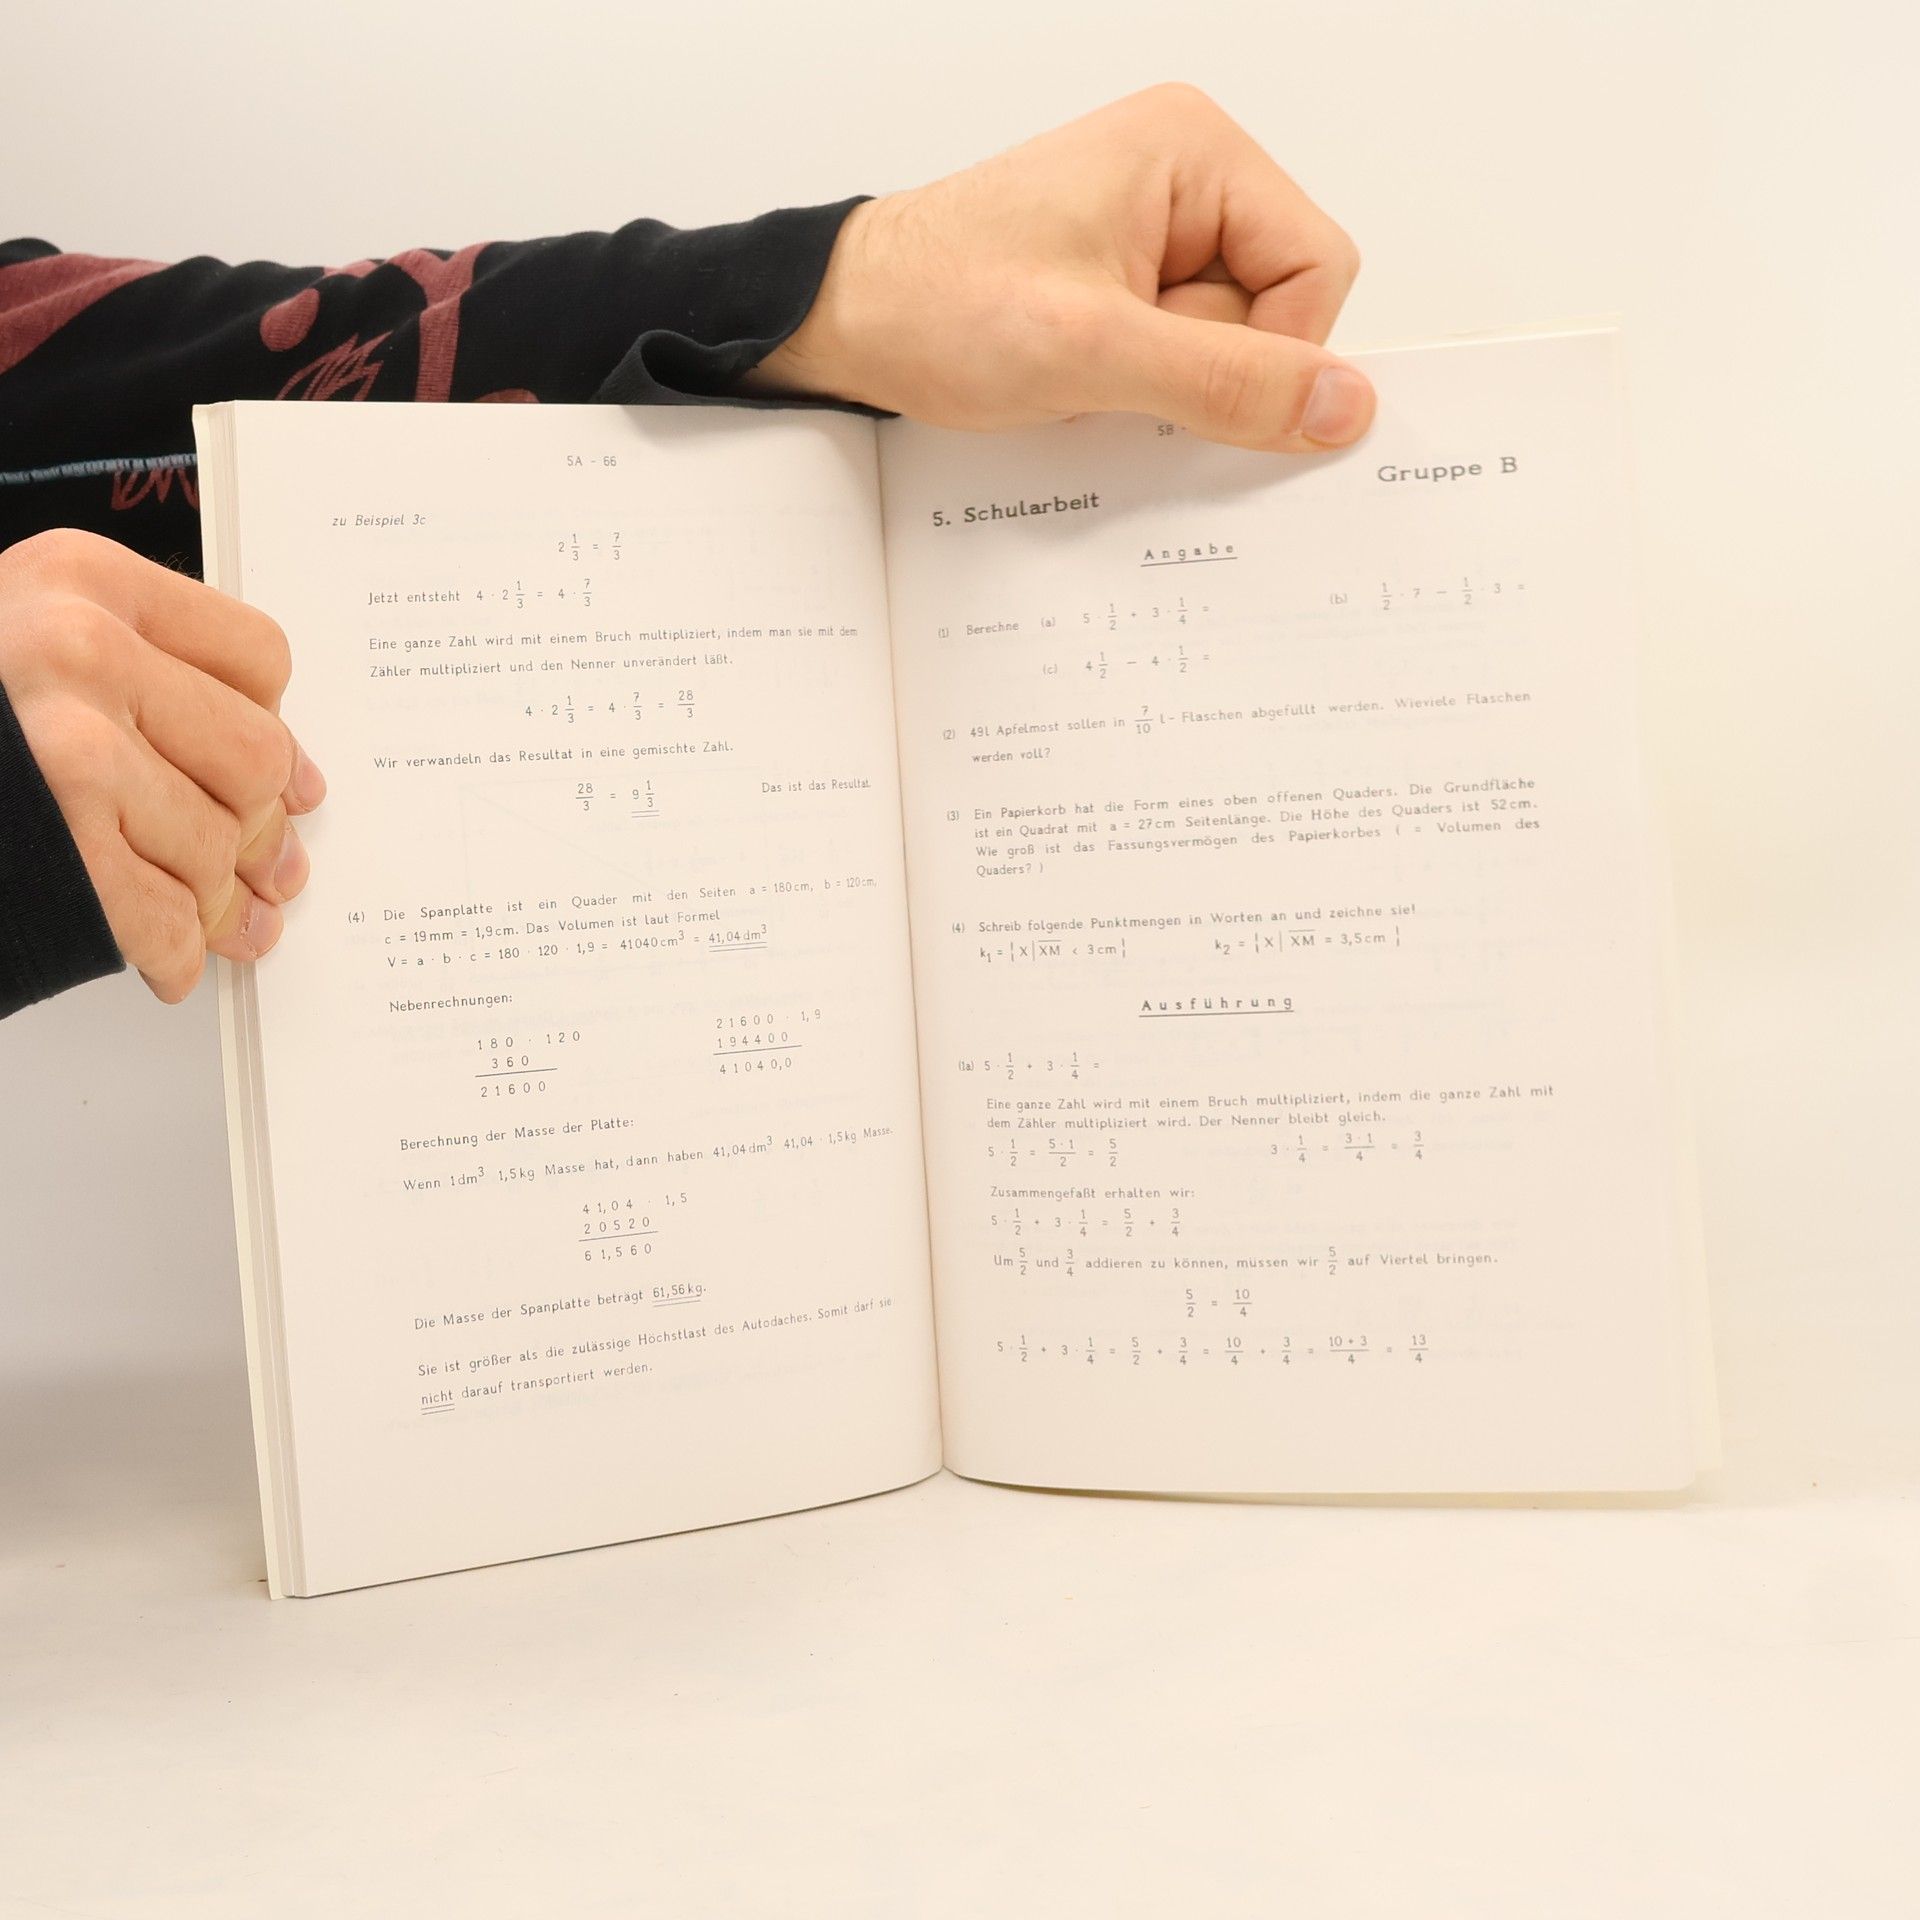 5A - 66
zu Beispiel 3c
2 1/3 = 7/3
Jetzt entsteht 4 · 2 1/3 = 4 · 7/3
Eine ganze Zahl wird mit einem Bruch multipliziert, indem man sie mit dem
Zähler multipliziert und den Nenner unverändert läßt.
4 · 2 1/3 = 4 · 7/3 = 28/3
Wir verwandeln das Resultat in eine gemischte Zahl.
28/3 = 9 1/3 Das ist das Resultat.
(4) Die Spanplatte ist ein Quader mit den Seiten a = 180 cm, b = 120 cm,
c = 19 mm = 1,9 cm. Das Volumen ist laut Formel
V = a · b · c = 180 · 120 · 1,9 = 41040 cm³ = 41,04 dm³
Nebenrechnungen:
180 · 120
360
21600
21600 · 1,9
194400
41040,0
Berechnung der Masse der Platte:
Wenn 1 dm³ 1,5 kg Masse hat, dann haben 41,04 dm³ 41,04 · 1,5 kg Masse.
41,04 · 1,5
20520
61,560
Die Masse der Spanplatte beträgt 61,56 kg.
Sie ist größer als die zulässige Höchstlast des Autodaches. Somit darf sie
nicht darauf transportiert werden.
5B -
Gruppe B
5. Schularbeit
Angabe
(1) Berechne (a) 5 · 1/2 + 3 · 1/4 = (b) 1/2 · 7 – 1/2 · 3 =
(c) 4 1/2 – 4 · 1/2 =
(2) 49 l Apfelmost sollen in 7/10 l - Flaschen abgefüllt werden. Wieviele Flaschen
werden voll?
(3) Ein Papierkorb hat die Form eines oben offenen Quaders. Die Grundfläche
ist ein Quadrat mit a = 27 cm Seitenlänge. Die Höhe des Quaders ist 52 cm.
Wie groß ist das Fassungsvermögen des Papierkorbes ( = Volumen des
Quaders? )
(4) Schreib folgende Punktmengen in Worten an und zeichne sie!
k₁ = {X | X̅M̅ < 3 cm} k₂ = {X | X̅M̅ = 3,5 cm}
Ausführung
(1a) 5 · 1/2 + 3 · 1/4 =
Eine ganze Zahl wird mit einem Bruch multipliziert, indem die ganze Zahl mit
dem Zähler multipliziert wird. Der Nenner bleibt gleich.
5 · 1/2 = 5 · 1/2 = 5/2 3 · 1/4 = 3 · 1/4 = 3/4
Zusammengefaßt erhalten wir:
5 · 1/2 + 3 · 1/4 = 5/2 + 3/4
Um 5/2 und 3/4 addieren zu können, müssen wir 5/2 auf Viertel bringen.
5/2 = 10/4
5 · 1/2 + 3 · 1/4 = 5/2 + 3/4 = 10/4 + 3/4 = 10 + 3/4 = 13/4